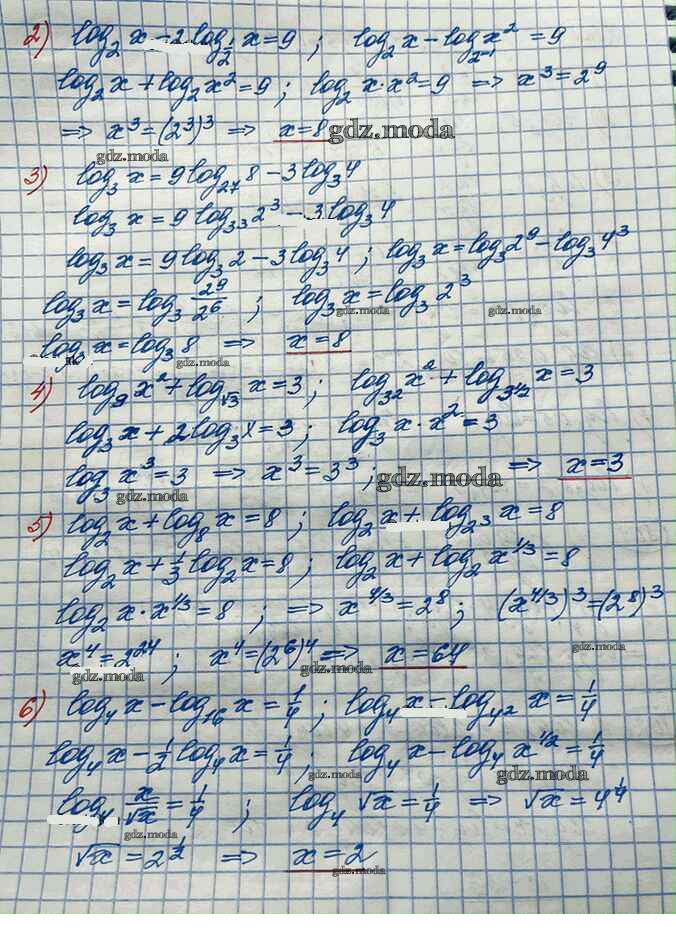 2) log₂ x − 2 log_{1/2} x = 9 ; log₂ x − log_{2⁻¹} x² = 9
log₂ x + log₂ x² = 9 ; log₂ x · x² = 9 ⟹ x³ = 2⁹
⟹ x³ = (2³)³ ⟹ x = 8 gdz.moda
gdz.moda
3) log₃ x = 9 log₂₇ 8 − 3 log₃ 4
log₃ x = 9 log_{3³} 2³ − 3 log₃ 4
log₃ x = 9 log₃ 2 − 3 log₃ 4 ; log₃ x = log₃ 2⁹ − log₃ 4³
log₃ x = log₃ 2⁹/2⁶ ; log₃ x = log₃ 2³
gdz.moda gdz.moda gdz.moda
log₃ x = log₃ 8 ⟹ x = 8
gdz.moda
4) log₉ x² + log_{√3} x = 3 ; log_{3²} x² + log_{3^{1/2}} x = 3
log₃ x + 2 log₃ x = 3 ; log₃ x · x² = 3
log₃ x³ = 3 ⟹ x³ = 3³ ; gdz.moda ⟹ x = 3
gdz.moda
5) log₂ x + log₈ x = 8 ; log₂ x + log_{2³} x = 8
log₂ x + 1/3 log₂ x = 8 ; log₂ x + log₂ x^{1/3} = 8
log₂ x · x^{1/3} = 8 ; ⟹ x^{4/3} = 2⁸ ; (x^{4/3})³ = (2⁸)³
x⁴ = 2²⁴ ; x⁴ = (2⁶)⁴ ⟹ x = 64
gdz.moda gdz.moda gdz.moda
6) log₄ x − log₁₆ x = 1/4 ; log₄ x − log_{4²} x = 1/4
log₄ x − 1/2 log₄ x = 1/4 ; log₄ x − log₄ x^{1/2} = 1/4
gdz.moda gdz.moda
log₄ x/√x = 1/4 ; log₄ √x = 1/4 ⟹ √x = 4^{1/4}
gdz.moda
√x = 2^{1/2} ⟹ x = 2
gdz.moda